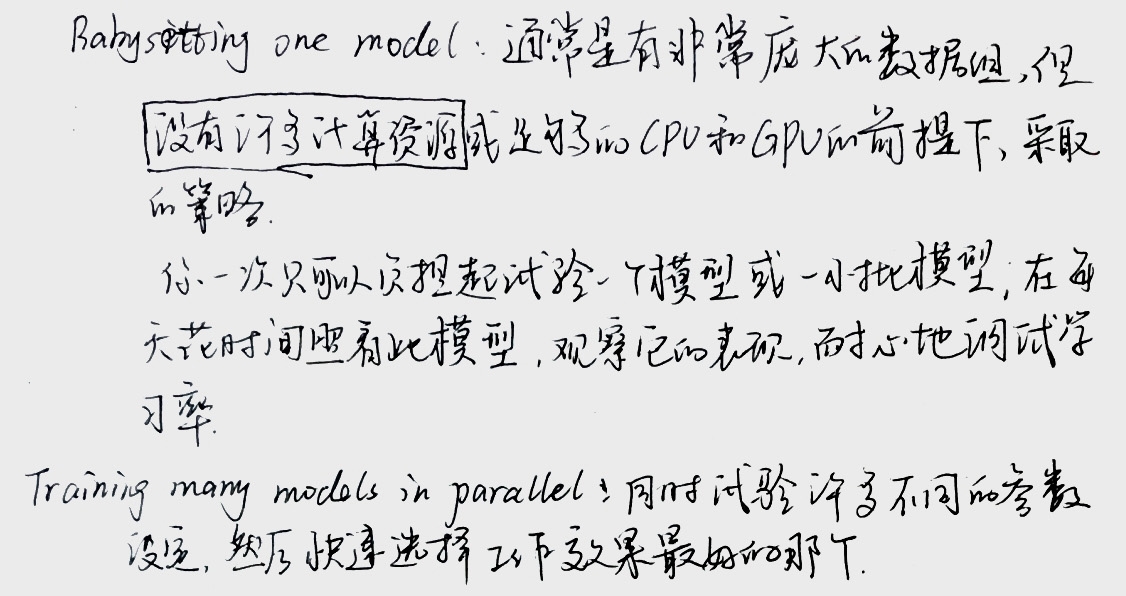 Babysitting one model：通常是有非常庞大的数据组,但
没有许多计算资源或足够的CPU和GPU的前提下,采取
的策略.
你一次只可以负担起试验一个模型或一小批模型,在每
天花时间照看此模型,观察它的表现,耐心地调试学
习率.
Training many models in parallel：同时试验许多不同的参数
设定,然后快速选择工作效果最好的那个.